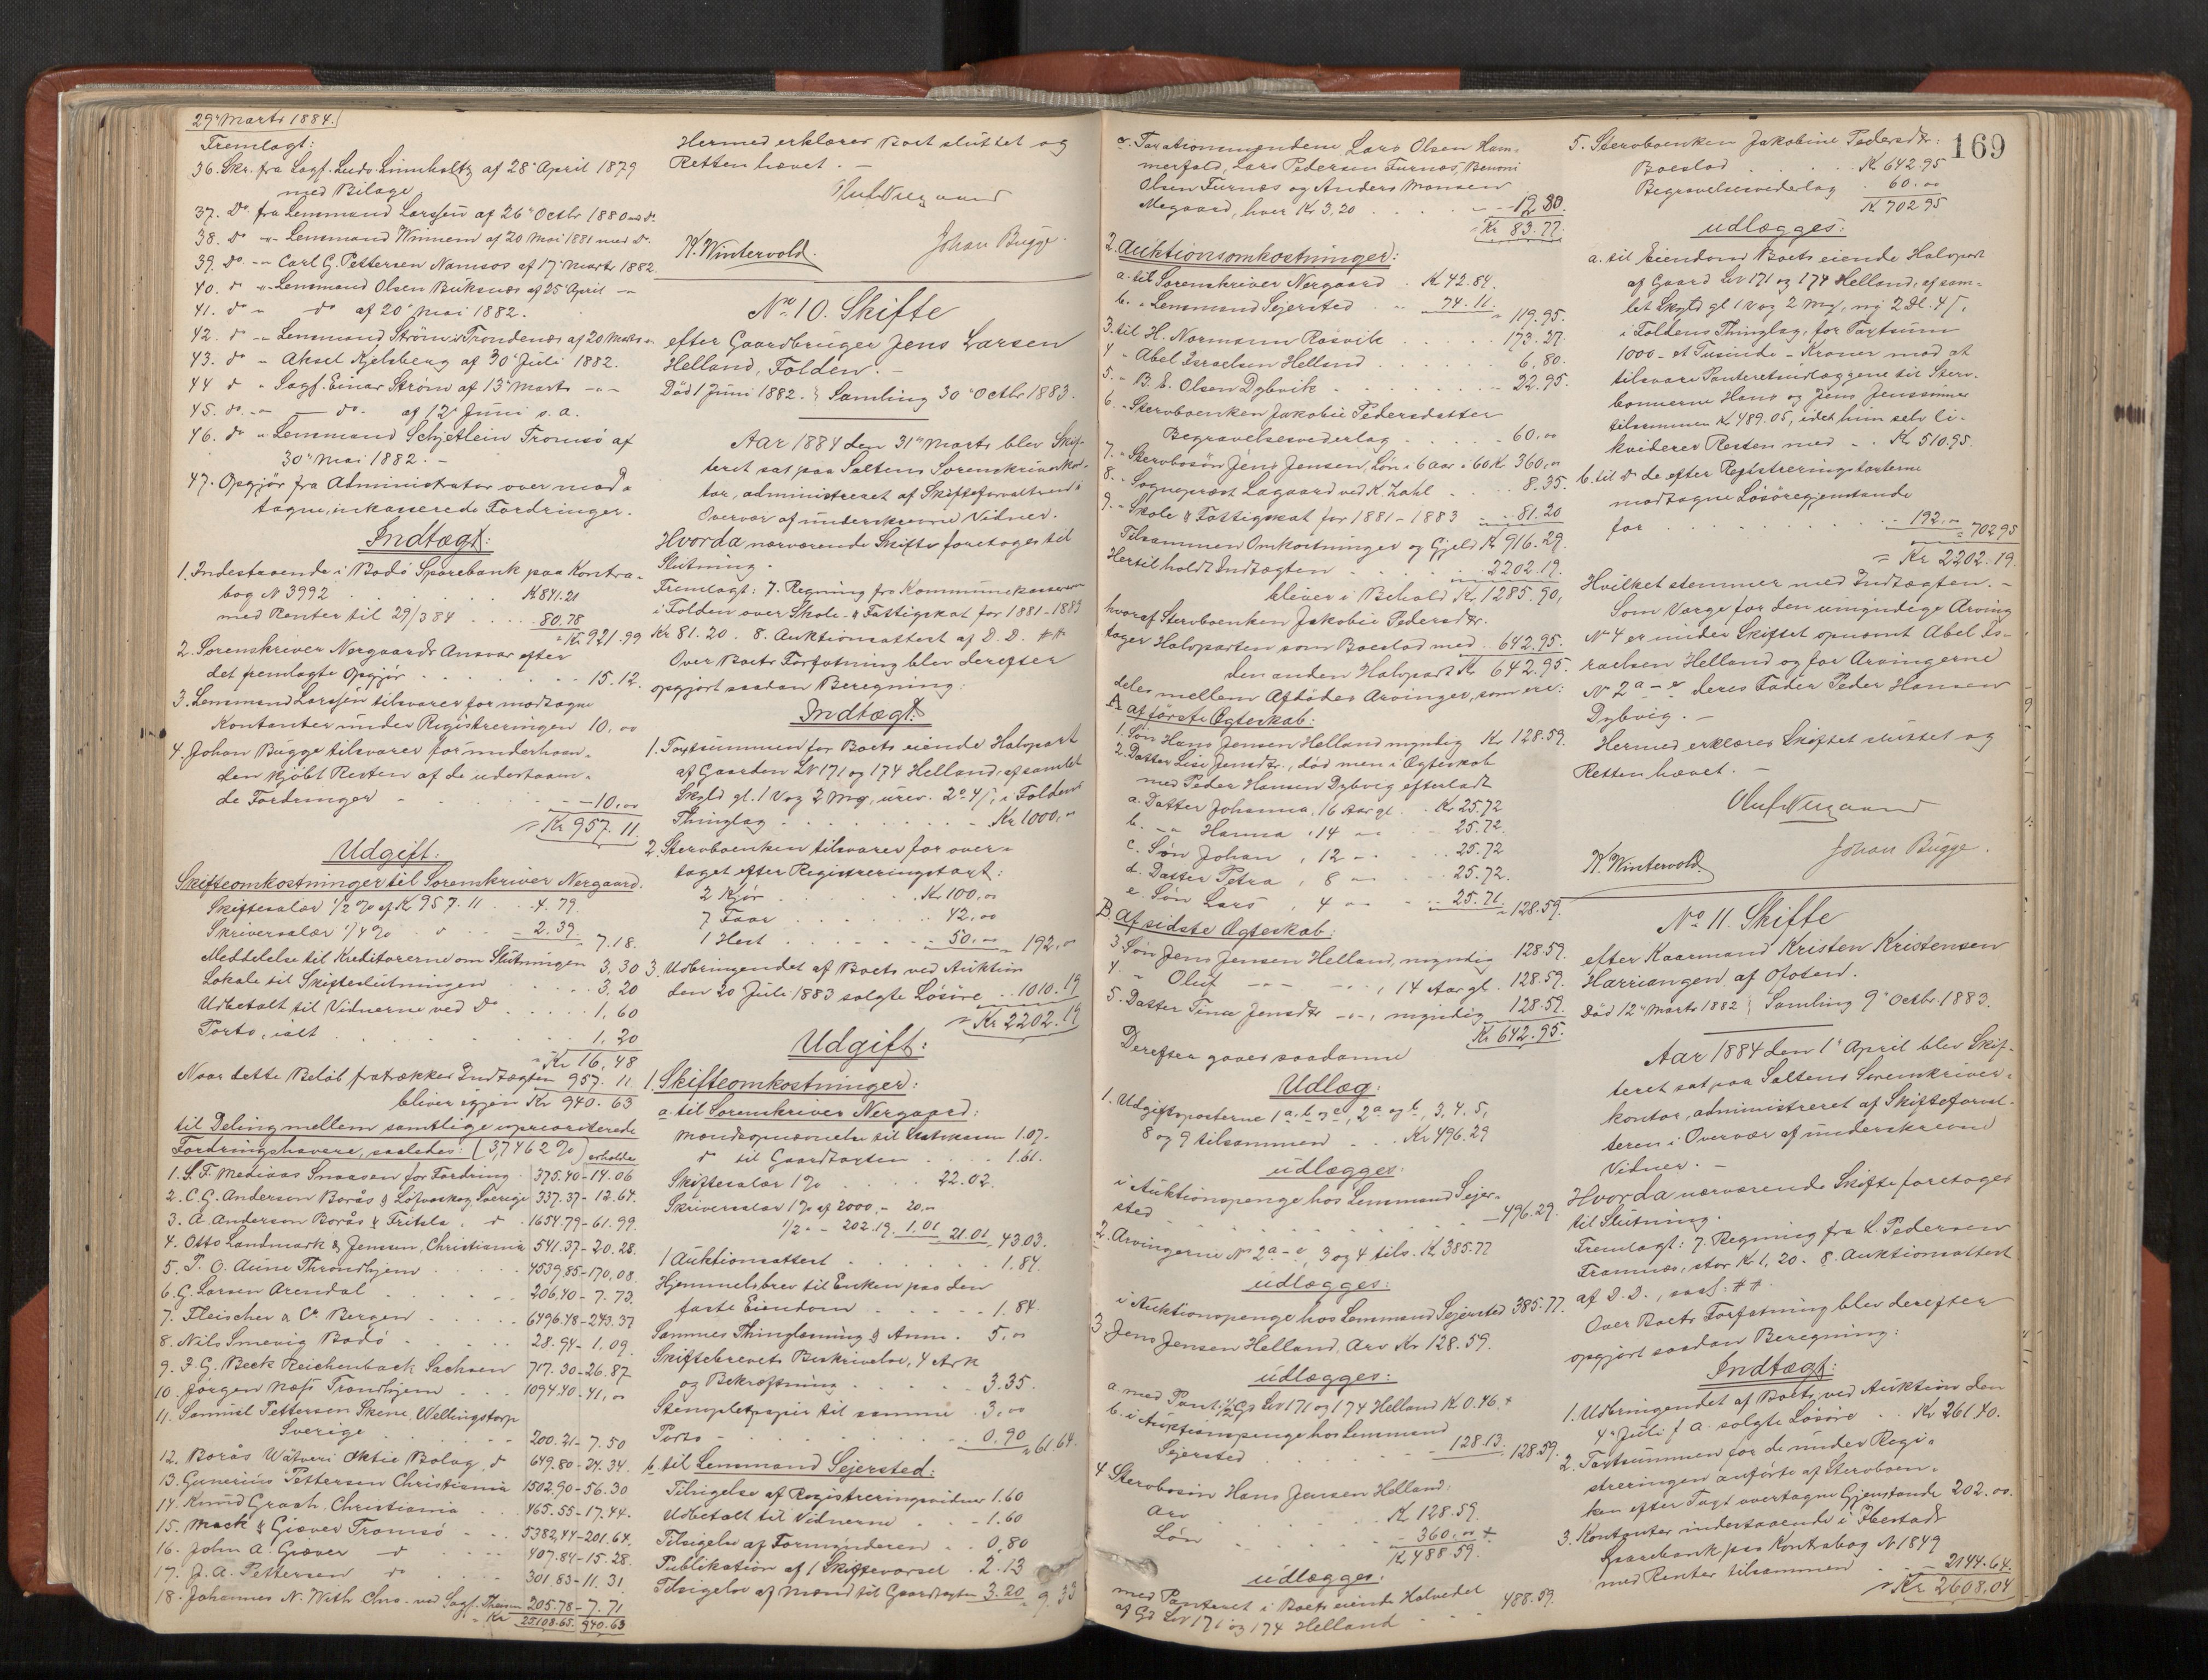 29' Marts 1884.
Fremlagt:
36. Skr. fra Sagf. Ludv. Linnholtz af 28' April 1879
med Bilage
37. Do fra Lensmand Larssen af 26' Octbr 1880 md do.
38. do -"- Lensmand Winnem af 20 Mai 1881 med do.
39. do -"- Carl G. Pettersen Namsos af 17' Marts 1882.
40. d -"- Lensmand Olsen Buksnæs af 25' April -"-
41. d " do af 20' Mai 1882.
42. d -"- Lensmand Ström i Trondenes af 20 Marts "
43. do " Aksel Kjelsberg af 30' Juli 1882.
44 d " Sagf. Einar Ström af 13' Marts -"-
45. do. -"- do. af 12' Juni s. a.
46. do " Lensmand Schjetlein Tromsö af
30' Mai 1882. -
47. Opgjör fra Administrator over mod-
tagne, inkasserede Fordringer.
Indtægt:
1. Indestaaende i Bodö Sparebank paa Kontra-
bog N 3992 . . . . K 841.21
med Renter til 29/3 84 . . . 80.78
" Kr 921.99
2. Sorenskriver Nergaards Ansvar efter
det fremlagte Opgjör . . . . 15.12.
3. Lensmand Larssen tilsvarer for modtagne
Kontanter under Registreringen 10,00
4. Johan Bugge tilsvarer for underhaan-
den kjöbt Resten af de udestaaen-
de Fordringer - . . . - 10,00
" Kr 957. 11.
Udgift:
Skifteomkostninger til Sorenskriver Nergaard.
Skiftesalær 1/2 % af Kr 957.11 . . 4.79.
Skriversalær 1/4 % . d . . - 2.39.
" 7.18.
Meddelelse til Kreditorerne om Slutningen 3,30
Lokale til Skifteslutningen . . . 3.20
Udbetalt til Vidnerne ved do . . . 1,60
Porto, ialt . . . . . 1,20
" Kr 16,48
Naar dette Belöb fratrækkes Indtægten 957.11
bliver igjen Kr 940.63
til Deling mellem samtlige uprioriterede
Fordringshavere, saaledes: (3,7462 %) erholde
1. S. F. Mediaas Snaasen for Fordring 375.40 - 14.06
2. C. G. Anderson Borås & Löfvaskog Sverige 337.37 - 12.64.
3. A. Anderson Borås & Fritsla . d . 1654.79 - 61.99.
4. Otto Landmark & Jenssen, Christiania 541.37 - 20.28.
5. P. O. Aune Throndhjem . . . 4539,85 - 170,08.
6. G. Larsen Arendal . . . 206,40 - 7.73.
7. Fleischer & Co Bergen . . . 6496.48 - 243.37
8. Nils Smevig Bodö . . . 28.94 - 1,09.
9. F. G. Beck Reichenback Sachsen 717.30 - 26.87
10. Jörgen Næss Trondhjem . . . 1094.40 - 41,00
11. Samuel Pettersen Skene, Wellingstorp
Sverige . . . 200.21 - 7.50
12. Borås Wäfveri Aktie Bolag, d 649.80 - 24.34.
13. Gunerius Pettersen Christiania 1502,90 - 56.30
14. Knud Graah, Christiania . . 465.55 - 17.44.
15. Mack & Giæver Tromsö . . . 5382,44 - 201.64.
16. John A. Giæver d . . . 407.84 - 15.28.
17. J. A. Pettersen do . . . 301,83 - 11.31.
18. Johannes N. With Chra. ved Sagf. Thesen 205.78 - 7.71
" Kr 25.108.65. 940.63
Hermed erklæres Boet sluttet og
Retten hævet. -
Oluf Nergaard
K. Wintervold. Johan Bugge.
No 10. Skifte
efter Gaardbruger Jens Larsen
Helland, Folden. -
Död 1 Juni 1882. Samling 30' Octbr 1883.
Aar 1884 den 31' Marts blev Skif-
teret sat paa Saltens Sorenskriverkon-
tor, administreret af Skifteforvalteren i
Overvær af underskrevne Vidner.
Hvorda nærværende Skifte foretoges til
Slutning.
Fremlagt: 7. Regning fra Kommunekassereren
i Folden over Skole- & Fattigskat for 1881-1883
Kr 81.20. 8. Auktionsattest af D. D. ##
Over Boets Forfatning blev derefter
opgjort saadan Beregning:
Indtægt:
1. Taxtsummen for Boets eiende Halvpart
af Gaarden LN 171 og 174 Helland, af samlet
Skyld gl. 1 Vog 2 Mrg, urev. 2 D 4 ß, i Foldens
Thinglag . . . . . Kr 1000,00
2. Stervboenken tilsvarer for over-
taget efter Registreringstaxt:
2 Kjör . . . . Kr 100,00
7 Faar . . . . 42,00
1 Hest . . . . - 50,00 " 192,00
3. Udbringendet af Boets ved Auktion
den 20 Juli 1883 solgte Lösöre . . 1010.19
" Kr 2202.19
Udgift:
1. Skifteomkostninger:
a. til Sorenskriver Nergaard:
Mandsopnævnelse til 1.07.
do til Gaardtaxten . . . 1.61.
Skiftesalær 1% . . . 22.02.
Skriversalær 1% af 2000,- 20,00
1/2 - - 202.19. 1.01 21.01 43.03.
1 Auktionsattest . . . . 1.84.
Hjemmelsbrev til Enken paa den
faste Eiendom . . . . - 1.84.
Sammes Thinglæsning & Anm. . 5,00
Skiftebrevets Beskrivelse, 4 Ark
og Bekræftning . . . . 3.35.
Stemplet papir til samme . . 3,00
Porto . . . . . - 0,90 " 61.64.
b. til Lensmand Sejersted:
Tilsigelse af Registreringsvidner 1.60
Udbetalt til Vidnerne . . - 1.60
Tilsigelse af Formynderen . . 0,80
Publikation af 1 Skiftevarsel . 2.13
Tilsigelse af Mænd til Gaardtaxten 3.20 " 9.33
169
c. Taxationsmændene Lars Olsen Ham-
merfald, Lars Pedersen Furnæs, Benoni
Olsen Furnæs og Anders Monsen
Megaard, hver Kr 3.20 . . . - 12.80.
" Kr 83.77.
2. Auktionsomkostninger:
a. til Sorenskriver Nergaard . K 42.84.
b. " Lensmand Sejersted - 77.11.
" 119.95.
3. til H. Normann Røsvik . . . 173.27.
4 " Abel Israelsen Helland . . . 6,80.
5. " B. E. Olsen Dybvik . . . 22.95.
6. " Stervboenken Jakobie Pedersdatter
Begravelsesvederlag . . . - 60,00
7. " Stervbosön Jens Jensen, Lön i 6 aar à 60 Kr 360,00
8. " Sognepræst Lagaard ved K. Zahl . . 8.35.
9. " Skole & Fattigskat for 1881-1883 - 81.20
Tilsammen Omkostninger og Gjeld Kr 916.29.
Hertil holdt Indtægten . . . . 2202.19.
bliver i Behold Kr 1285.90,
hvoraf Stervboenken Jakobie Pedersdtr.
tager Halvparten som Boeslod med 642.95.
den anden Halvpart Kr 642.95.
deles mellem Afdödes Arvinger, som ere:
A af förste Ægteskab:
1. Sön Hans Jensen Helland myndig Kr 128.59.
2. Datter Lise Jensdtr., död men i Ægteskab
med Peder Hansen Dybvig efterladt
a. Datter Johanna, 16 Aar gl. . Kr 25.72
b. -"- Hanna , 14 -"- . - 25.72.
c. Sön Johan , 12 -"- . - 25.72
d. Datter Petra , 8 -"- . - 25.72.
e. Sön Lars , 4 -"- . - 25.71.
" 128.59.
B. Af sidste Ægteskab:
3. Sön Jens Jensen Helland, myndig 128.59.
4. " Oluf -"- -"- , 14 Aar gl. . 128.59.
5. Datter Tina Jensdtr -"-, myndig 128.59.
Kr 642.95.
Derefter gaves saadanne
Udlæg:
1. Udgiftsposterne 1 a, b og c, 2 a og b, 3, 4, 5,
8 og 9 tilsammen . . . Kr 496.29
udlægges:
i Auktionspenge hos Lensmand Sejer-
sted . . . . . - 496.29.
2. Arvingerne No 2 a - e, 3 og 4 tils. Kr 385.77
udlægges:
i Auktionspenge hos Lensmand Sejersted 385.77.
3 Jens Jensen Helland, Arv Kr 128.59.
udlægges:
a. med Pant i 1/2 Gd LN 171 og 174 Helland K 0.46. +
b. i Auktionspenge hos Lensmand
Sejersted . . . - 128.13. 128.59.
4 Stervbosön Hans Jensen Helland:
Arv . . . Kr 128.59.
Lön . . . - 360,00 +
Kr 488.59.
udlægges:
med Panteret i Boets eiende Halvedel
af Gd LN 171 og 174 Helland - - - 488.59.
5. Stervboenken Jakobine Pedersdtr:
Boeslod . . . . Kr 642.95
Begravelsesvederlag . 60,00
Kr 702.95
udlægges:
a. til Eiendom Boets eiende Halvpart
af Gaard LN 171 og 174 Helland, af sam-
let Skyld gl. 1 Vog 2 Mrg, ny 2 Dl. 4 ß,
i Foldens Thinglag, for Taxtsum
1000 - et Tusinde - Kroner mod at
tilsvare Panteretsudlæggene til Sterv-
bosönnerne Hans og Jens Jenssønner
tilsammen K 489.05, idet hun selv li-
kviderer Resten med - . Kr 510.95.
b. til do de efter Registreringstaxterne
modtagne Lösöregjenstande
for . . . . . - 192,00 " 702.95
" Kr 2202.19.
Hvilket stemmer med Indtægten. -
Som Værge for den umyndige Arving
No 4 er under Skiftet opnævnt Abel Is-
raelsen Helland og for Arvingerne
No 2 a - e deres Fader Peder Hansen
Dybvig. -
Hermed erklæres Skiftet sluttet og
Retten hævet. -
Oluf Nergaard
K. Wintervold. Johan Bugge.
No 11. Skifte
efter Kaarmand Kristen Kristensen
Harriangen af Ofoten.
Död 12' Marts 1882 Samling 9' Octbr. 1883.
Aar 1884 den 1' April blev Skif-
teret sat paa Saltens Sorenskriver-
kontor, administreret af Skifteforval-
teren i Overvær af underskrevne
Vidner. -
Hvorda nærværende Skifte foretoges
til Slutning.
Fremlagt: 7. Regning fra L. Pedersen
Framnæs, stor K 1,20. 8. Auktionsattest
af D. D., saal: ##
Over Boets Forfatning blev derefter
opgjort saadan Beregning:
Indtægt:
1. Udbringendet af Boets ved Auktion den
4' Juli f. A. solgte Lösöre . . Kr 261.40.
2. Taxtsummen for de under Regi-
streringen anförte af Stervboen-
ken efter Taxt overtagne Gjenstande 202.00.
3. Kontanter indestaaende i Ibestads
Sparebank paa Kontrabog N 1849
med Renter tilsammen - 2144.64.
" Kr 2608.04